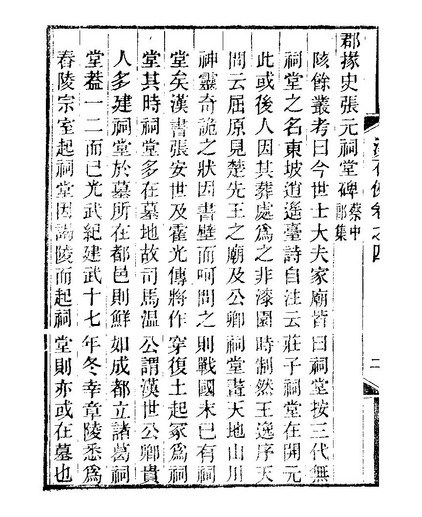 漢石例卷之四
二
郡掾史張元祠堂碑 蔡中郎集
陔餘叢考曰今世士大夫家廟皆曰祠堂按三代無
祠堂之名東坡逍遙臺詩自注云莊子祠堂在開元
此或後人因其葬處爲之非漆園時制然王逸序天
問云屈原見楚先王之廟及公卿祠堂畫天地山川
神靈奇詭之狀因書壁而呵問之則戰國末已有祠
堂矣漢書張安世及霍光傳將作穿復土起冢爲祠
堂其時祠堂多在墓地故司馬温公謂漢世公卿貴
人多建祠堂於墓所在都邑則鮮如成都立諸葛祠
堂葢一二而已光武紀建武十七年冬幸章陵悉爲
舂陵宗室起祠堂因謁陵而起祠堂則亦或在墓也